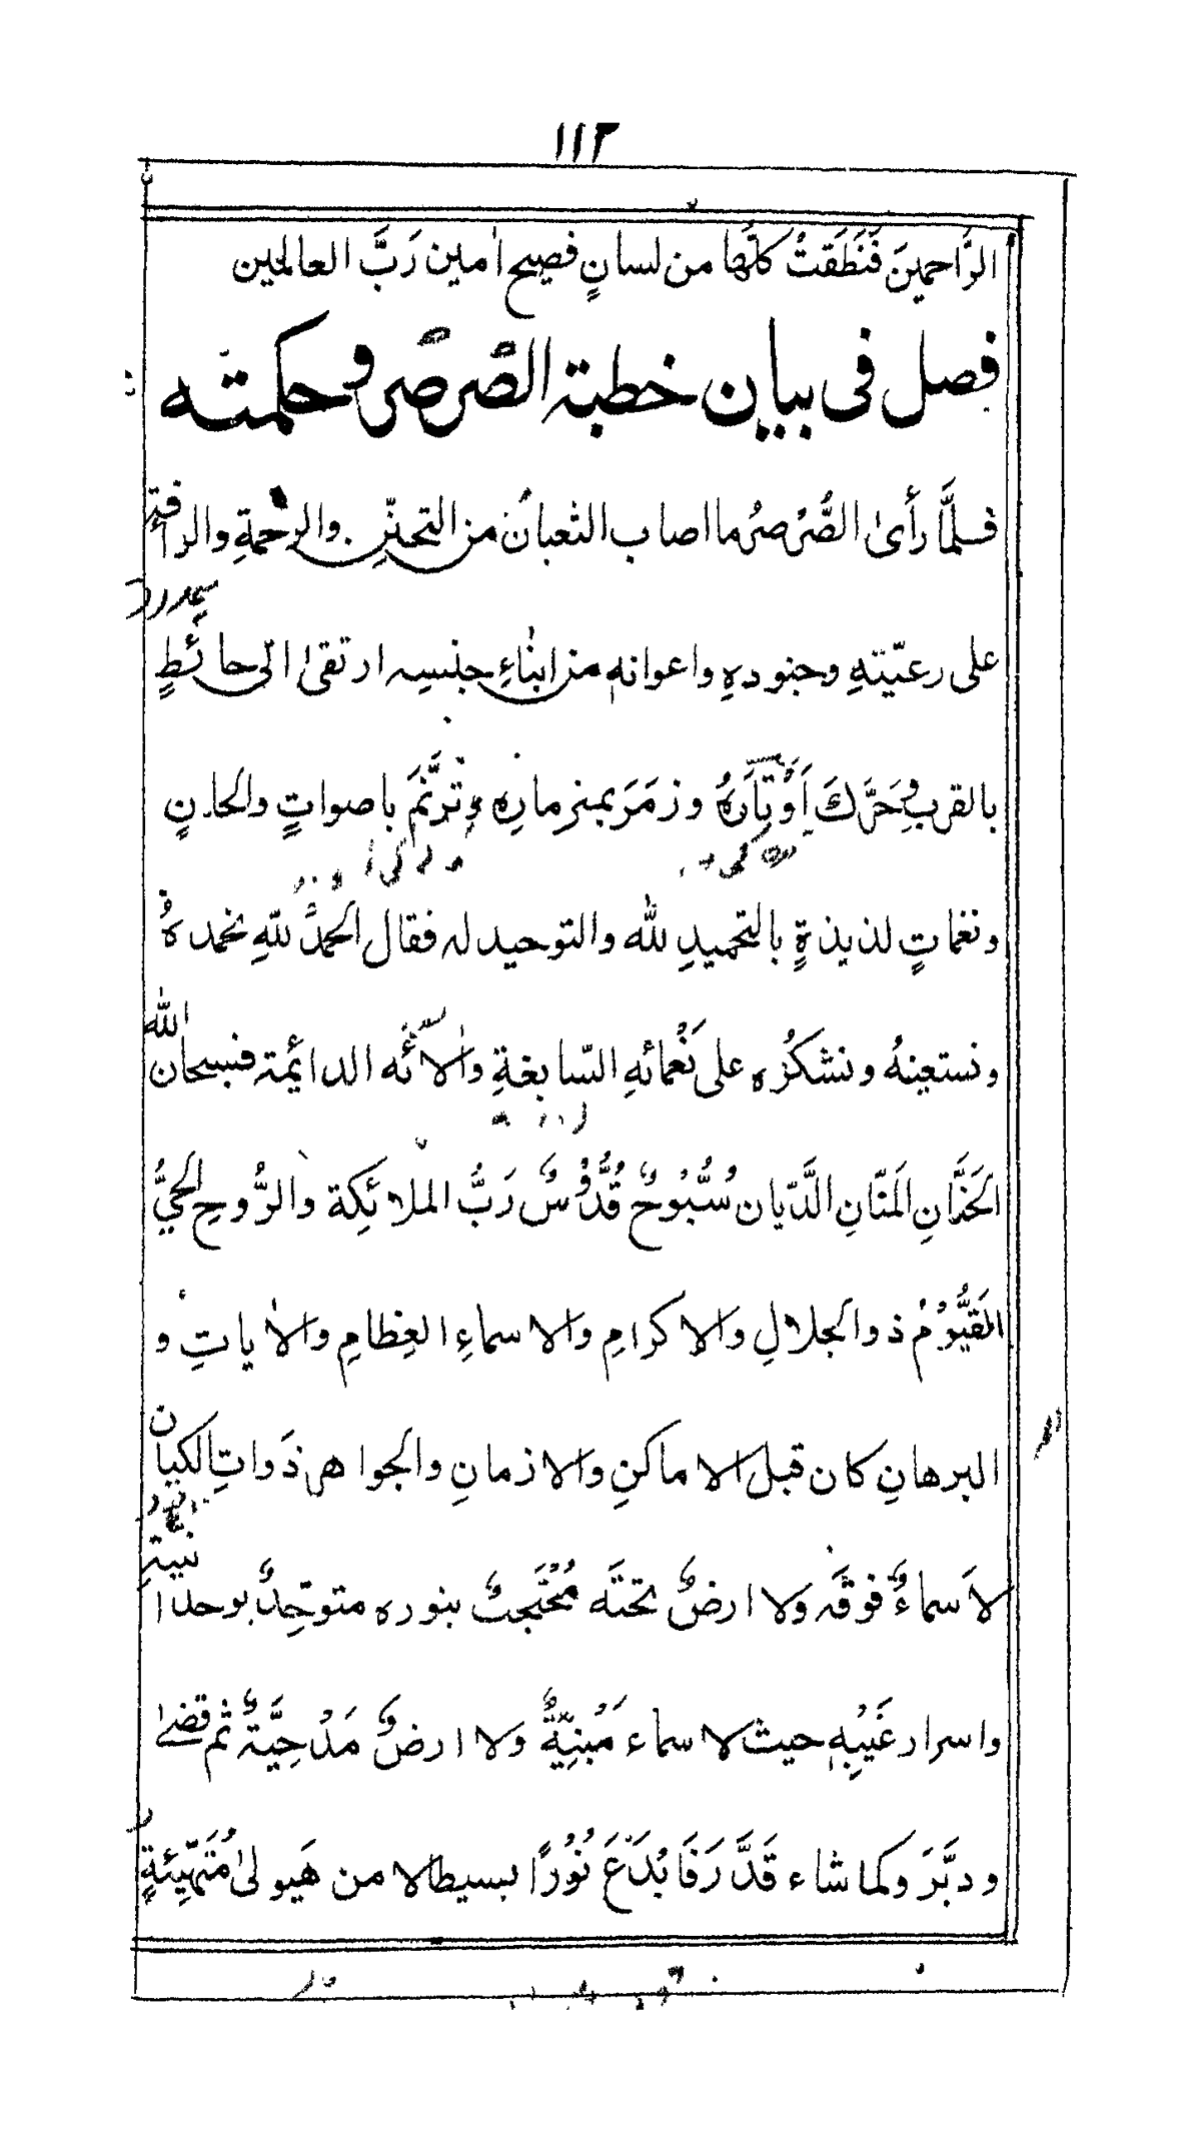 ١١٢
الرَّاحمينَ فَنَطَقتْ كلّها من لسانٍ فصيح اٰمين رَبَّ العالمين
فصل فى بيان خطبة الصّرصر و حكمته
فلمَّا رأىٰ الصُّرصرُ ما اصاب الثعبانَ من التحنّنِ والرحمةِ والرافةِ
على رعيّتهِ وجنودهِ واعوانهٖ من ابناءِ جنسِه ارتقىٰ الىٰ حائطٍ
بالقرب وحَرَّكَ اَوْتَارَهُ وزمَرَ بمزمارِه وتَرَنَّمَ باصواتٍ والحانٍ
ونغماتٍ لذيذةٍ بالتحميدِ لله والتوحيد له فقال الحمدُ للّهِ نحمدهُ
ونستعينهُ ونشكرُه على نَعْمائهِ السّابغةِ واٰلآئه الدائمة فسبحان الله
الحَنَّانِ المَنّانِ الدَّيّان سُبُّوحٌ قُدُّوْسٌ رَبُّ الملائِكة والرُّوحِ الحيُّ
القَيُّوْمُ ذوالجلالِ والاكرامِ والاسماءِ العِظامِ والاٰياتِ و
البرهانِ كان قبل الاماكنِ والازمانِ والجواهر ذَواتِ الكيان
لاَ سماءٌ فوقَه ولا ارضٌ تحتَه مُحْتَجبٌ بنوره متوحّدٌ بوحدانيةِ
واسرار غَيْبِهٖ حيث لا سماء مَبْنِيّةٌ ولا ارضٌ مَدْحِيَّةٌ ثم قضىٰ
ودبَّرَ وكما شاء قَدَّرَ فَابْدَعَ نُوْرًا بسيطا لا من هَيولىٰ مُتَهَيِّئةٍ